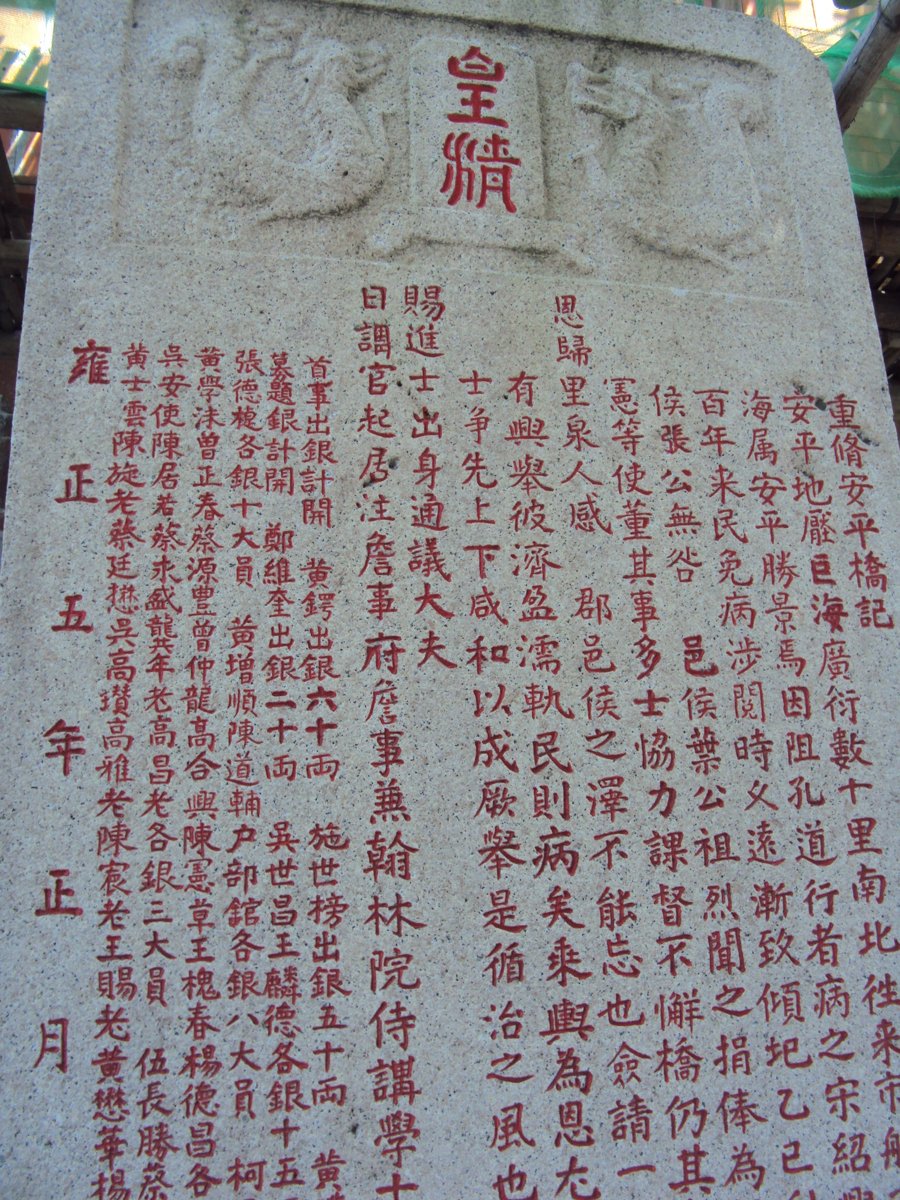 皇清
重脩安平橋記
安平地壓巨海廣衍數十里南北往来市舶
海属安平勝景焉因阻孔道行者病之宋紹
百年来民免病涉閱時乆遠漸致傾圯乙巳
侯張公無咎 邑侯葉公祖烈聞之捐俸為
憲等使董其事多士協力課督不懈橋仍其
恩歸里泉人感 郡邑侯之澤不能忘也僉請一
有興舉彼濟盈濡軌民則病矣乗輿為恩尢
士争先上下咸和以成厥舉是循治之風也
賜進士出身通議大夫
日講官起居注詹事府詹事兼翰林院侍講學士
首事出銀計開 黄鍔出銀六十両 施世榜出銀五十両 黄
募題銀計開 鄭維奎出銀二十両 吳世昌王麟德各銀十五
張德楼各銀十大員 黄增順陳道輔户部館各銀八大員 柯
黄學沫曾正春蔡源豊曾仲龍高合興陳憲章王槐春楊德昌各
吳安使陳居若蔡永盛龔年老高昌老各銀三大員 伍長勝蔡
黄士雲陳旋老蔡廷懋吳高瓚高雅老陳宸老王賜老黄懋華楊
雍正五年正月